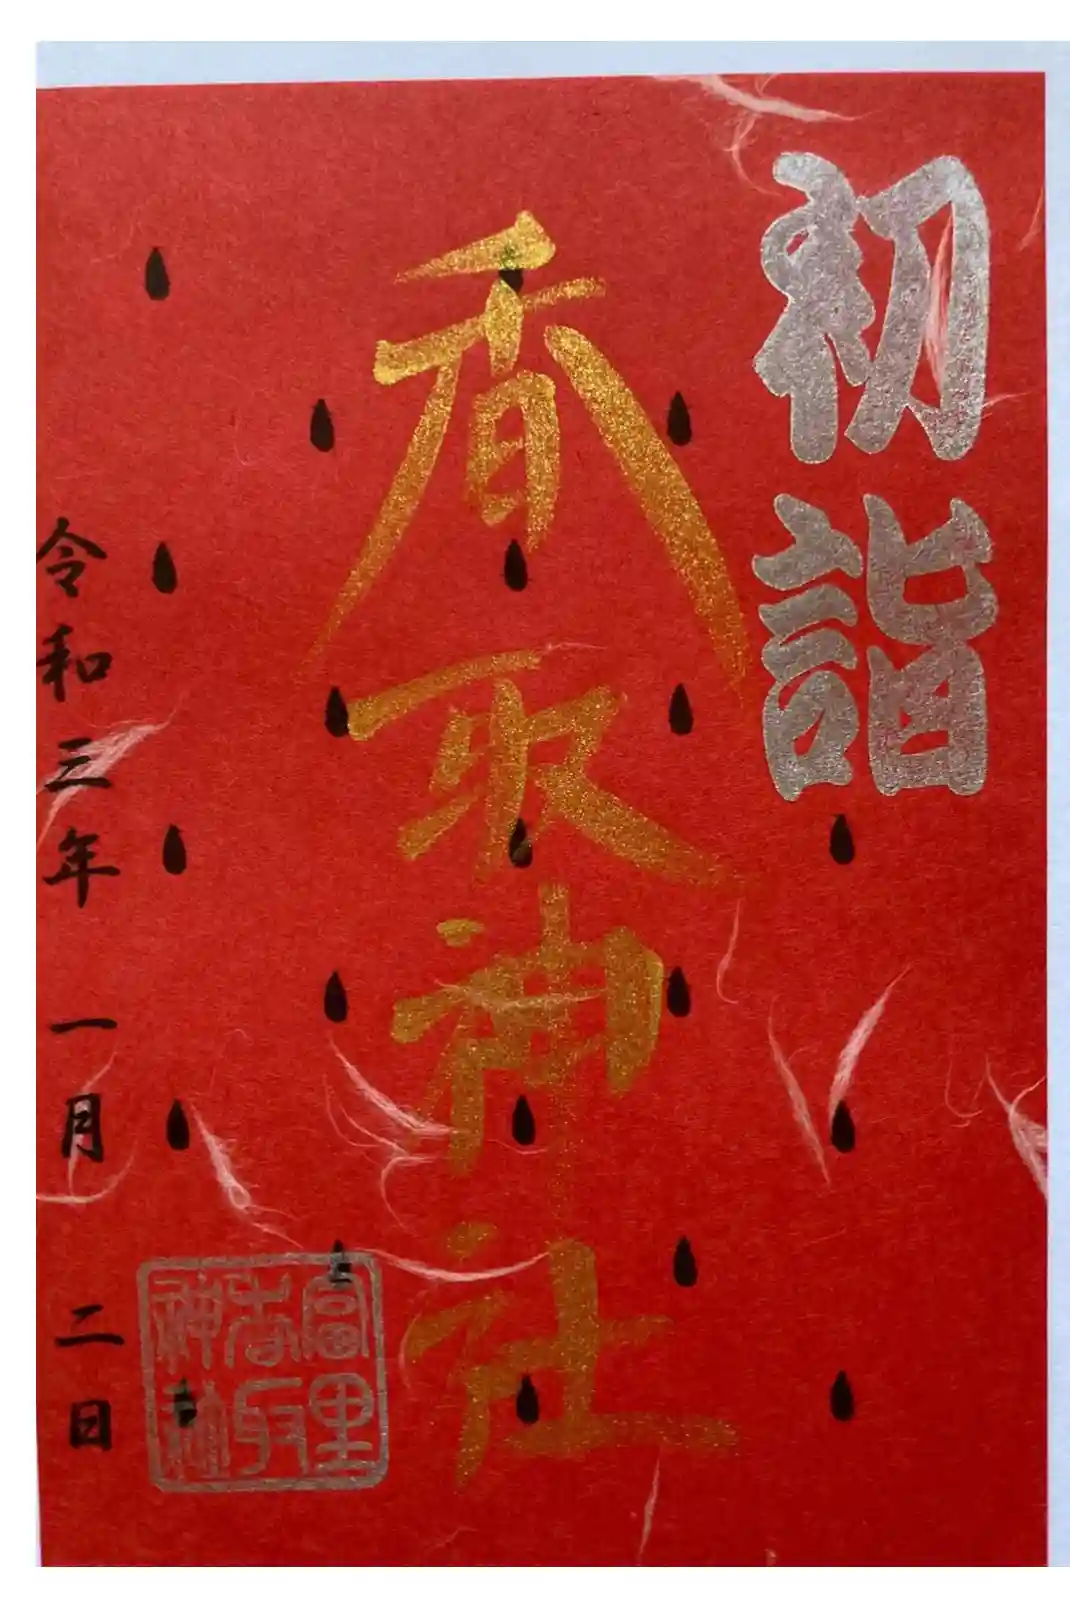 初詣
香取神社
富里
香取
神社
令和三年 一月 二日